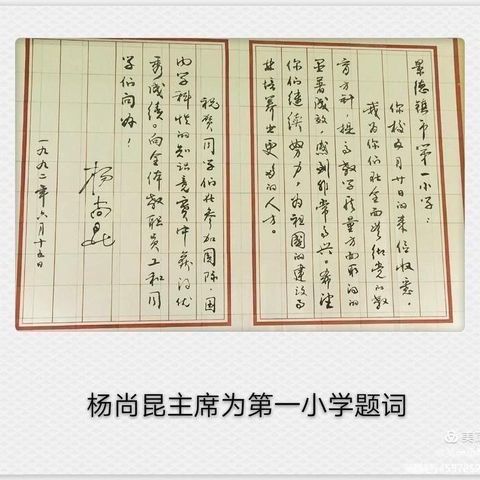 景德镇市第一小学：
你校五月廿日的来信收悉，
我为你们在全面贯彻党的教
育方针，提高教学质量方面取得的
显著成效，感到非常高兴。希望
你们继续努力，为祖国的建设事
业培养出更多的人才。
祝贺同学们在参加国际、国
内学科性的知识竞赛中获得优
秀成绩。向全体教职员工和同
学们问好！
杨尚昆
一九九二年六月十五日
杨尚昆主席为第一小学题词
美